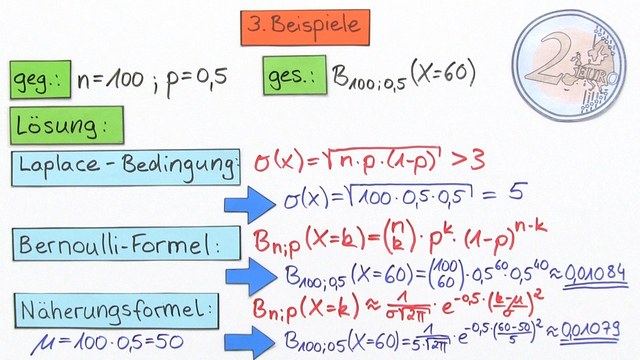 3. Beispiele
geg.: n=100 ; p=0,5 ges.: B₁₀₀;₀,₅(X=60)
2 EURO
Lösung:
Laplace-Bedingung: σ(x)=√n·p·(1-p) >3
σ(x)=√100·0,5·0,5 = 5
Bernoulli-Formel: Bₙ;ₚ(X=k)=(n k)·p^k·(1-p)^n-k
B₁₀₀;₀,₅(X=60)=(100 60)·0,5^60·0,5^40≈0,01084
Näherungsformel: Bₙ;ₚ(X=k)≈ 1/σ√2π · e^-0,5·(k-μ/σ)^2
μ=100·0,5=50 B₁₀₀;₀₅(X=60)= 1/5·√2π · e^-0,5·(60-50/5)^2 ≈0,01079